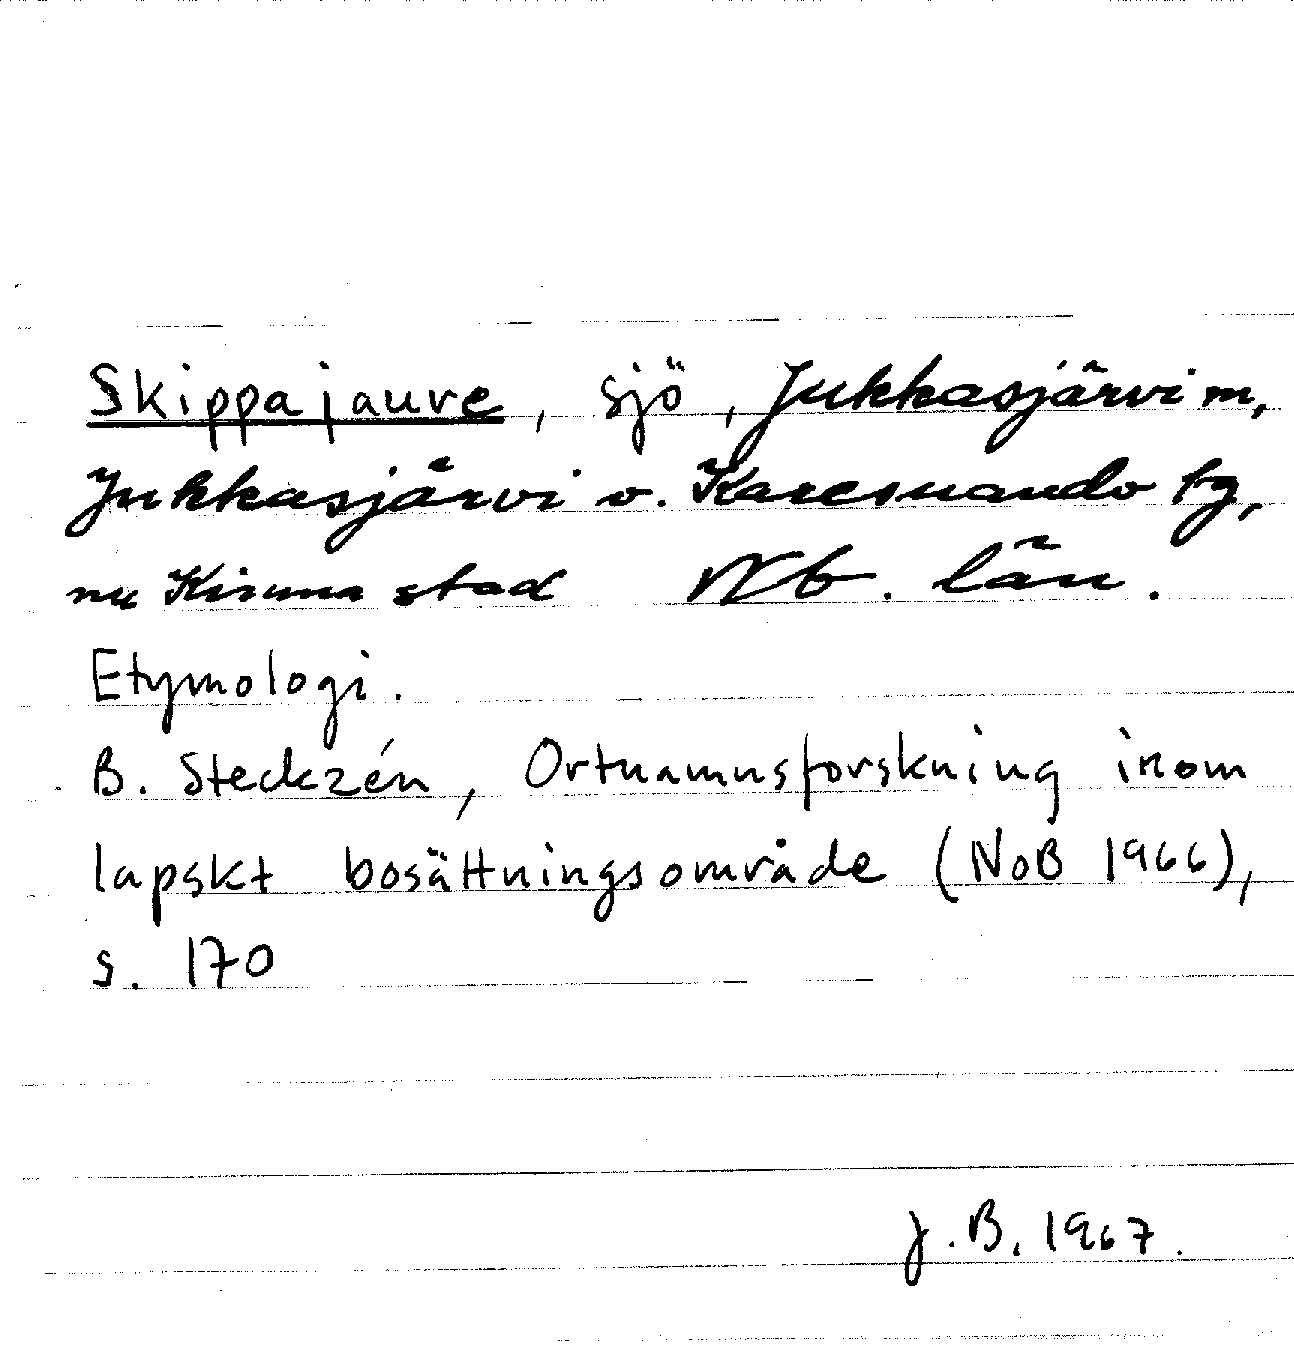 Skippajaure, sjö, Jukkasjärvi m,
Jukkasjärvi o. Karesuando tg,
nu Kiruna stad Nb. län.
Etymologi.
B. Steckzén, Ortnamnsforskning inom
lapskt bosättningsområde (NoB 1966),
s. 170
J.B. 1967.